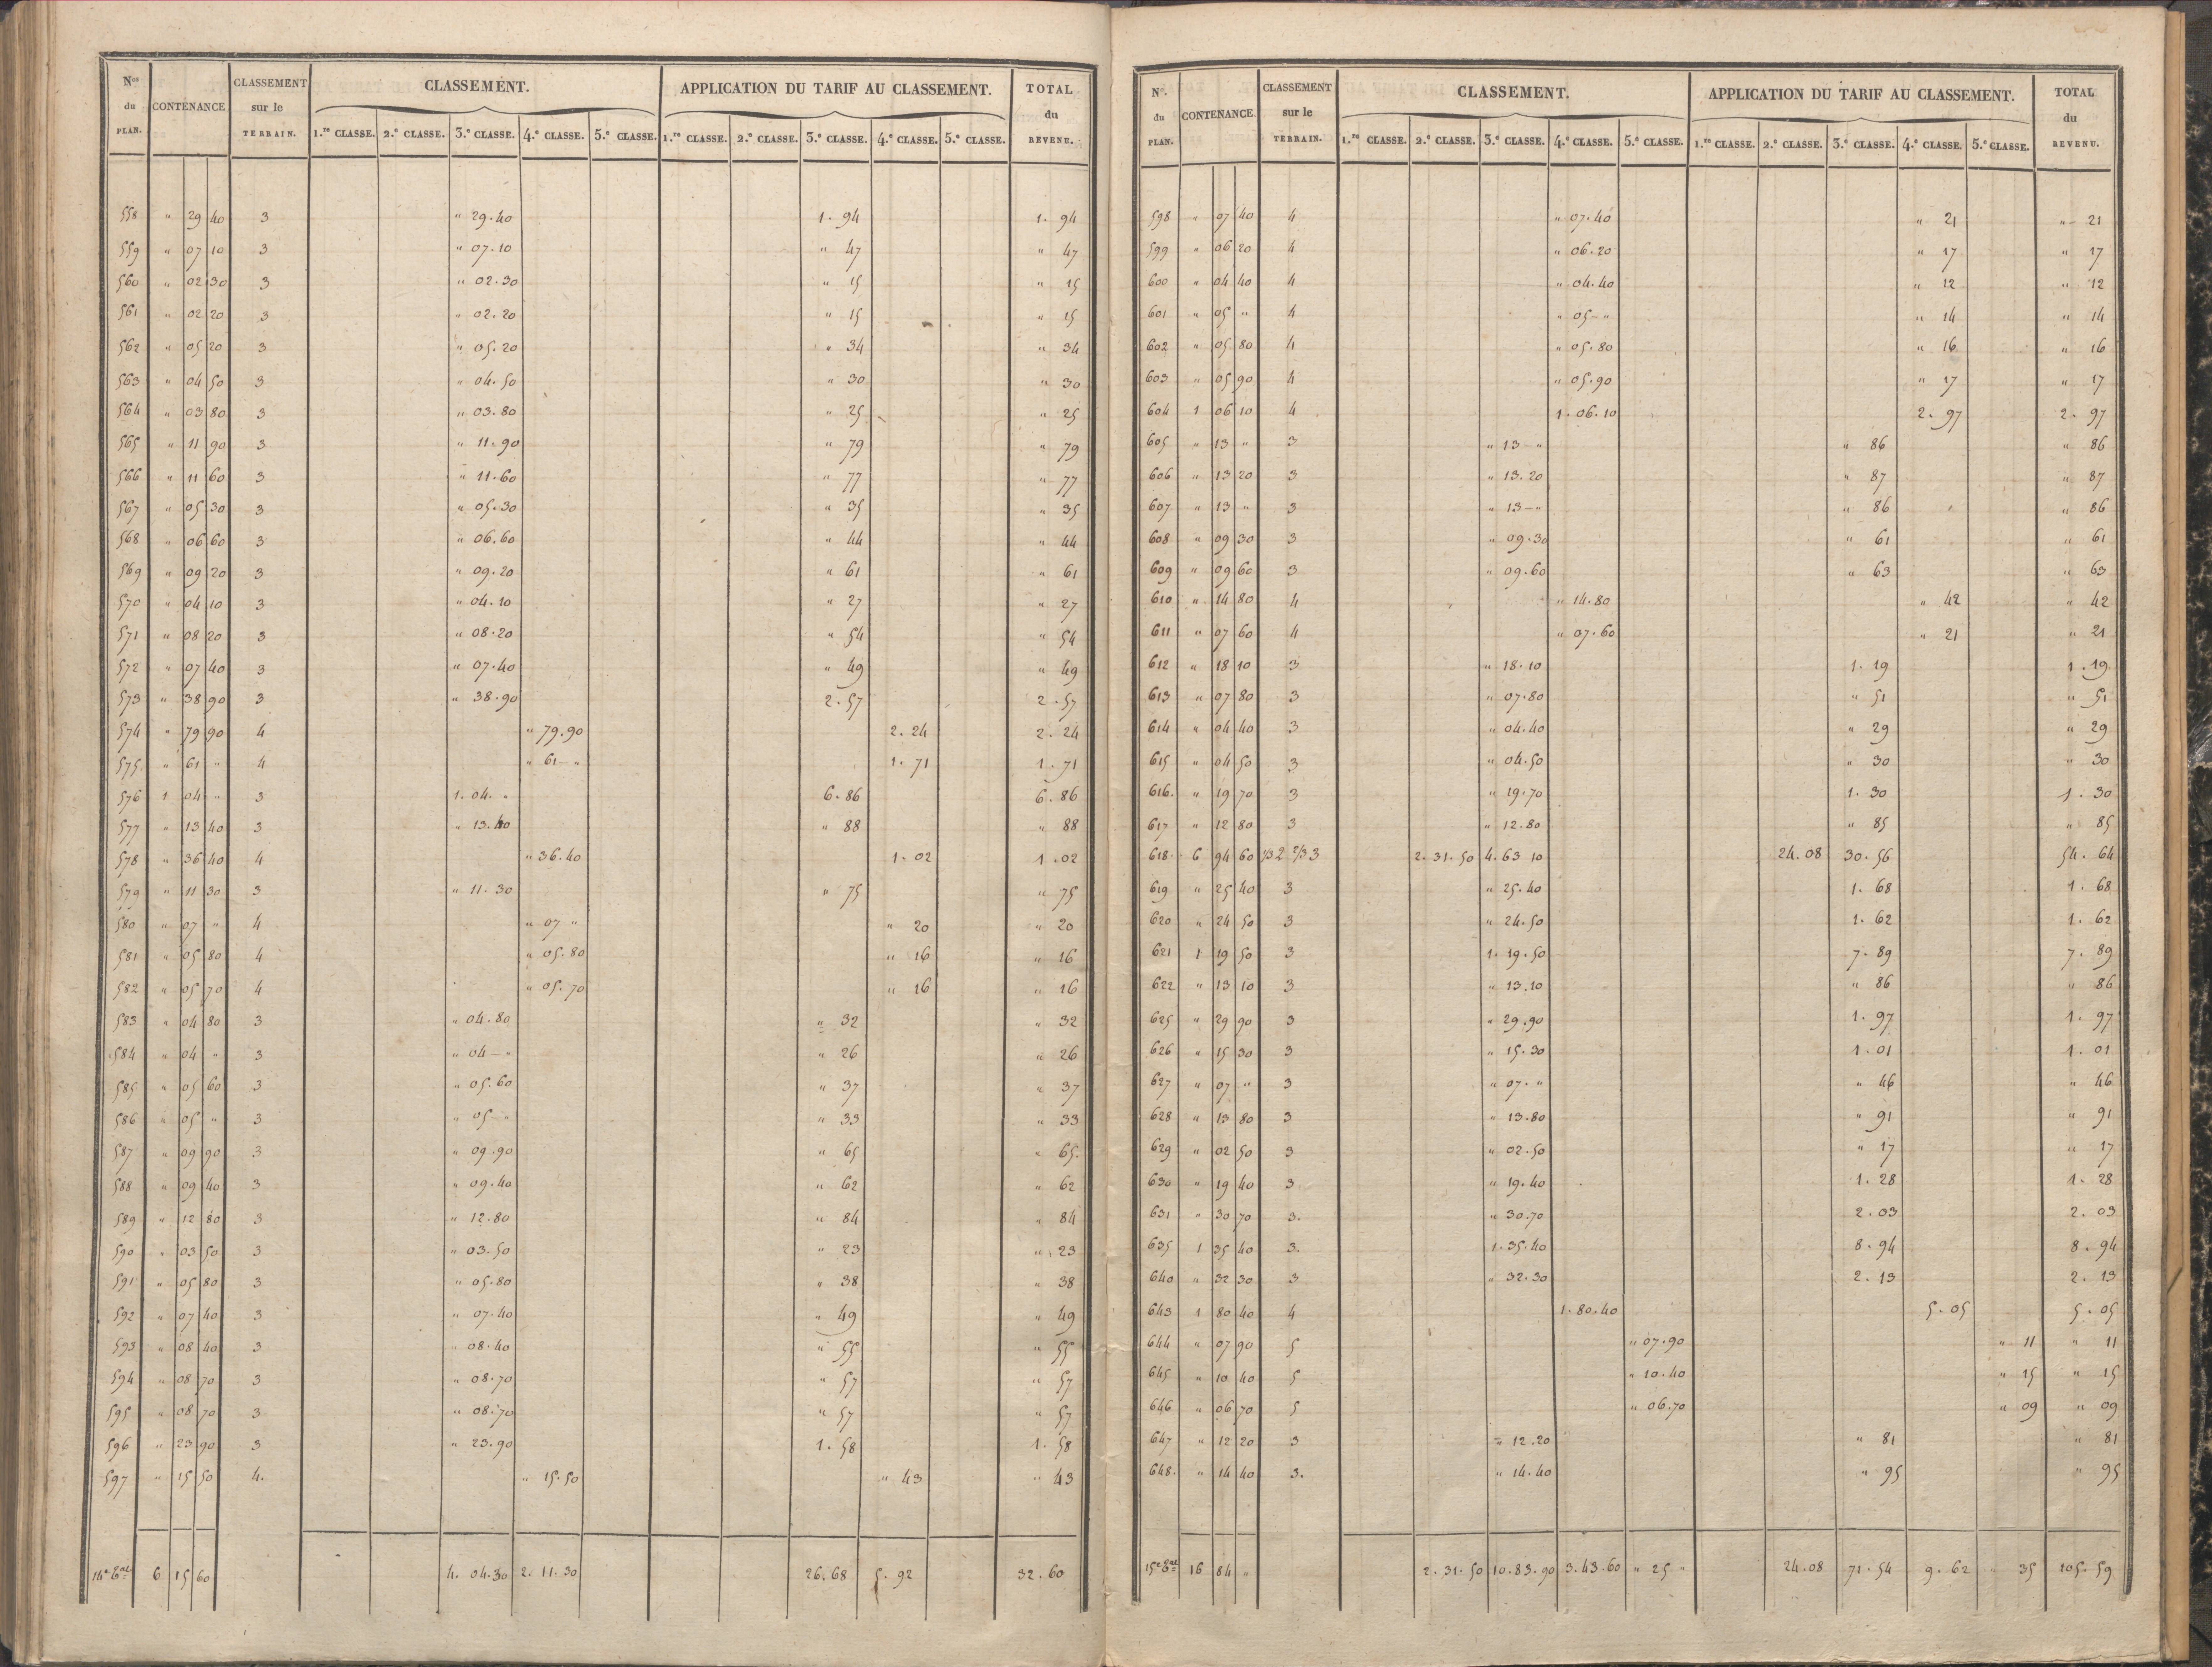 Nos du PLAN. CONTENANCE CLASSEMENT sur le TERRAIN. CLASSEMENT. APPLICATION DU TARIF AU CLASSEMENT. TOTAL du REVENU.
1.re CLASSE. 2.e CLASSE. 3.e CLASSE. 4.e CLASSE. 5.e CLASSE. 1.re CLASSE. 2.e CLASSE. 3.e CLASSE. 4.e CLASSE. 5.e CLASSE.
558 " 29 40 3 " 29.40 1. 94 1. 94
559 " 07 10 3 " 07.10 " 47 " 47
560 " 02 30 3 " 02.30 " 15 " 15
561 " 02 20 3 " 02.20 " 15 " 15
562 " 05 20 3 " 05.20 " 34 " 34
563 " 04 50 3 " 04.50 " 30 " 30
564 " 03 80 3 " 03.80 " 25 " 25
565 " 11 90 3 " 11.90 " 79 " 79
566 " 11 60 3 " 11.60 " 77 " 77
567 " 05 30 3 " 05.30 " 35 " 35
568 " 06 60 3 " 06.60 " 44 " 44
569 " 09 20 3 " 09.20 " 61 " 61
570 " 04 10 3 " 04.10 " 27 " 27
571 " 08 20 3 " 08.20 " 54 " 54
572 " 07 40 3 " 07.40 " 49 " 49
573 " 38 90 3 " 38.90 2.57 2.57
574 " 79 90 4 " 79.90 2. 24 2. 24
575 " 61 " 4 " 61-" 1. 71 1. 71
576 1 04 " 3 1.04. " 6.86 6.86
577 " 13 40 3 " 13.40 " 88 " 88
578 " 36 40 4 " 36.40 1.02 1.02
579 " 11 30 3 " 11.30 " 75 " 75
580 " 07 " 4 " 07 " " 20 " 20
581 " 05 80 4 " 05.80 " 16 " 16
582 " 05 70 4 " 05.70 " 16 " 16
583 " 04 80 3 " 04.80 " 32 " 32
584 " 04 " 3 " 04-" " 26 " 26
585 " 05 60 3 " 05.60 " 37 " 37
586 " 05 " 3 " 05-" " 33 " 33
587 " 09 90 3 " 09.90 " 65 " 65
588 " 09 40 3 " 09.40 " 62 " 62
589 " 12 80 3 " 12.80 " 84 " 84
590 " 03 50 3 " 03.50 " 23 " 23
591 " 05 80 3 " 05.80 " 38 " 38
592 " 07 40 3 " 07.40 " 49 " 49
593 " 08 40 3 " 08.40 " 55 " 55
594 " 08 70 3 " 08.70 " 57 " 57
595 " 08 70 3 " 08.70 " 57 " 57
596 " 23 90 3 " 23.90 1.58 1.58
597 " 15 50 4. " 15.50 " 43 " 43
6 15 60 4. 04.30 2. 11. 30 26.68 5. 92 32.60
No. du PLAN. CONTENANCE. CLASSEMENT sur le TERRAIN. CLASSEMENT. APPLICATION DU TARIF AU CLASSEMENT. TOTAL du REVENU.
1.re CLASSE. 2.e CLASSE. 3.e CLASSE. 4.e CLASSE. 5.e CLASSE. 1.re CLASSE. 2.e CLASSE. 3.e CLASSE. 4.e CLASSE. 5.e CLASSE.
598 " 07 40 4 " 07.40 " 21 " 21
599 " 06 20 4 " 06.20 " 17 " 17
600 " 04 40 4 " 04.40 " 12 " 12
601 " 05 " 4 " 05-" " 14 " 14
602 " 05 80 4 " 05.80 " 16 " 16
603 " 05 90 4 " 05.90 " 17 " 17
604 1 06 10 4 1.06.10 2. 97 2. 97
605 " 13 " 3 " 13-" " 86 " 86
606 " 13 20 3 " 13.20 " 87 " 87
607 " 13 " 3 " 13-" " 86 " 86
608 " 09 30 3 " 09.30 " 61 " 61
609 " 09 60 3 " 09.60 " 63 " 63
610 " 14 80 4 " 14.80 " 42 " 42
611 " 07 60 4 " 07.60 " 21 " 21
612 " 18 10 3 " 18.10 1. 19 1.19
613 " 07 80 3 " 07.80 " 51 " 51
614 " 04 40 3 " 04.40 " 29 " 29
615 " 04 50 3 " 04.50 " 30 " 30
616. " 19 70 3 " 19.70 1. 30 1. 30
617 " 12 80 3 " 12.80 " 85 " 85
618. 6 94 60 1/3 2 2/3 3 2.31.50 4.63 10 24.08 30.56 54. 64
619 " 25 40 3 " 25.40 1. 68 1. 68
620 " 24 50 3 " 24.50 1. 62 1. 62
621 1 19 50 3 1.19.50 7. 89 7. 89
622 " 13 10 3 " 13.10 " 86 " 86
625 " 29 90 3 " 29.90 1. 97 1. 97
626 " 15 30 3 " 15.30 1.01 1.01
627 " 07 " 3 " 07. " " 46 " 46
628 " 13 80 3 " 13.80 " 91 " 91
629 " 02 50 3 " 02.50 " 17 " 17
630 " 19 40 3 " 19.40 1. 28 1. 28
631 " 30 70 3. " 30.70 2.03 2. 03
635 1 35 40 3. 1.35.40 8.94 8. 94
640 " 32 30 3 " 32.30 2. 13 2. 13
643 1 80 40 4 1.80.40 5.05 5.05
644 " 07 90 5 " 07.90 " 11 " 11
645 " 10 40 5 " 10.40 " 15 " 15
646 " 06 70 5 " 06.70 " 09 " 09
647 " 12 20 3 " 12.20 " 81 " 81
648. " 14 40 3. " 14.40 " 95 " 95
16 84 " 2.31.50 10.83.90 3.43.60 " 25 " 24.08 71.54 9. 62 " 35 105.59